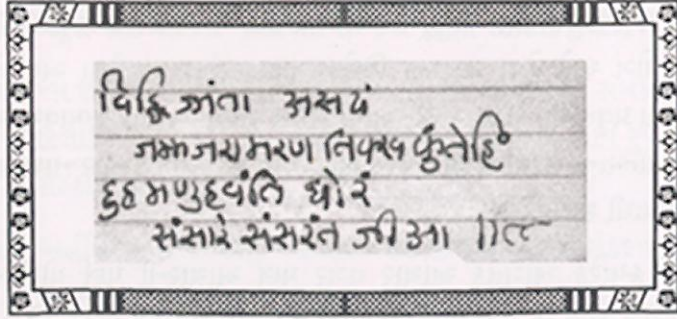 असयं
जम्म जरा मरण तिक्ख कुंतेहिं
दुह मणुहवंति घोरं
संसारे संसरंत जीआ ॥